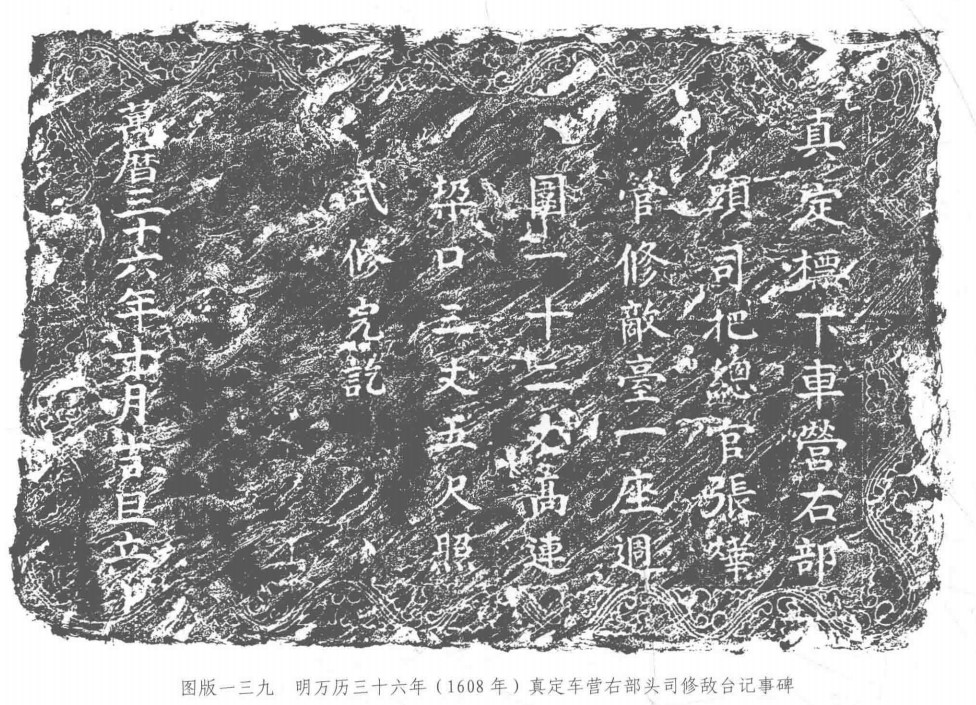 真定標下車營右部
頭司把總官張燁
管修敵臺一座週
圍一十二丈高連
口三丈五尺照
式修完訖
萬暦三十六年月吉旦立
图版一三九 明万历三十六年(1608年)真定车营右部头司修敌台记事碑